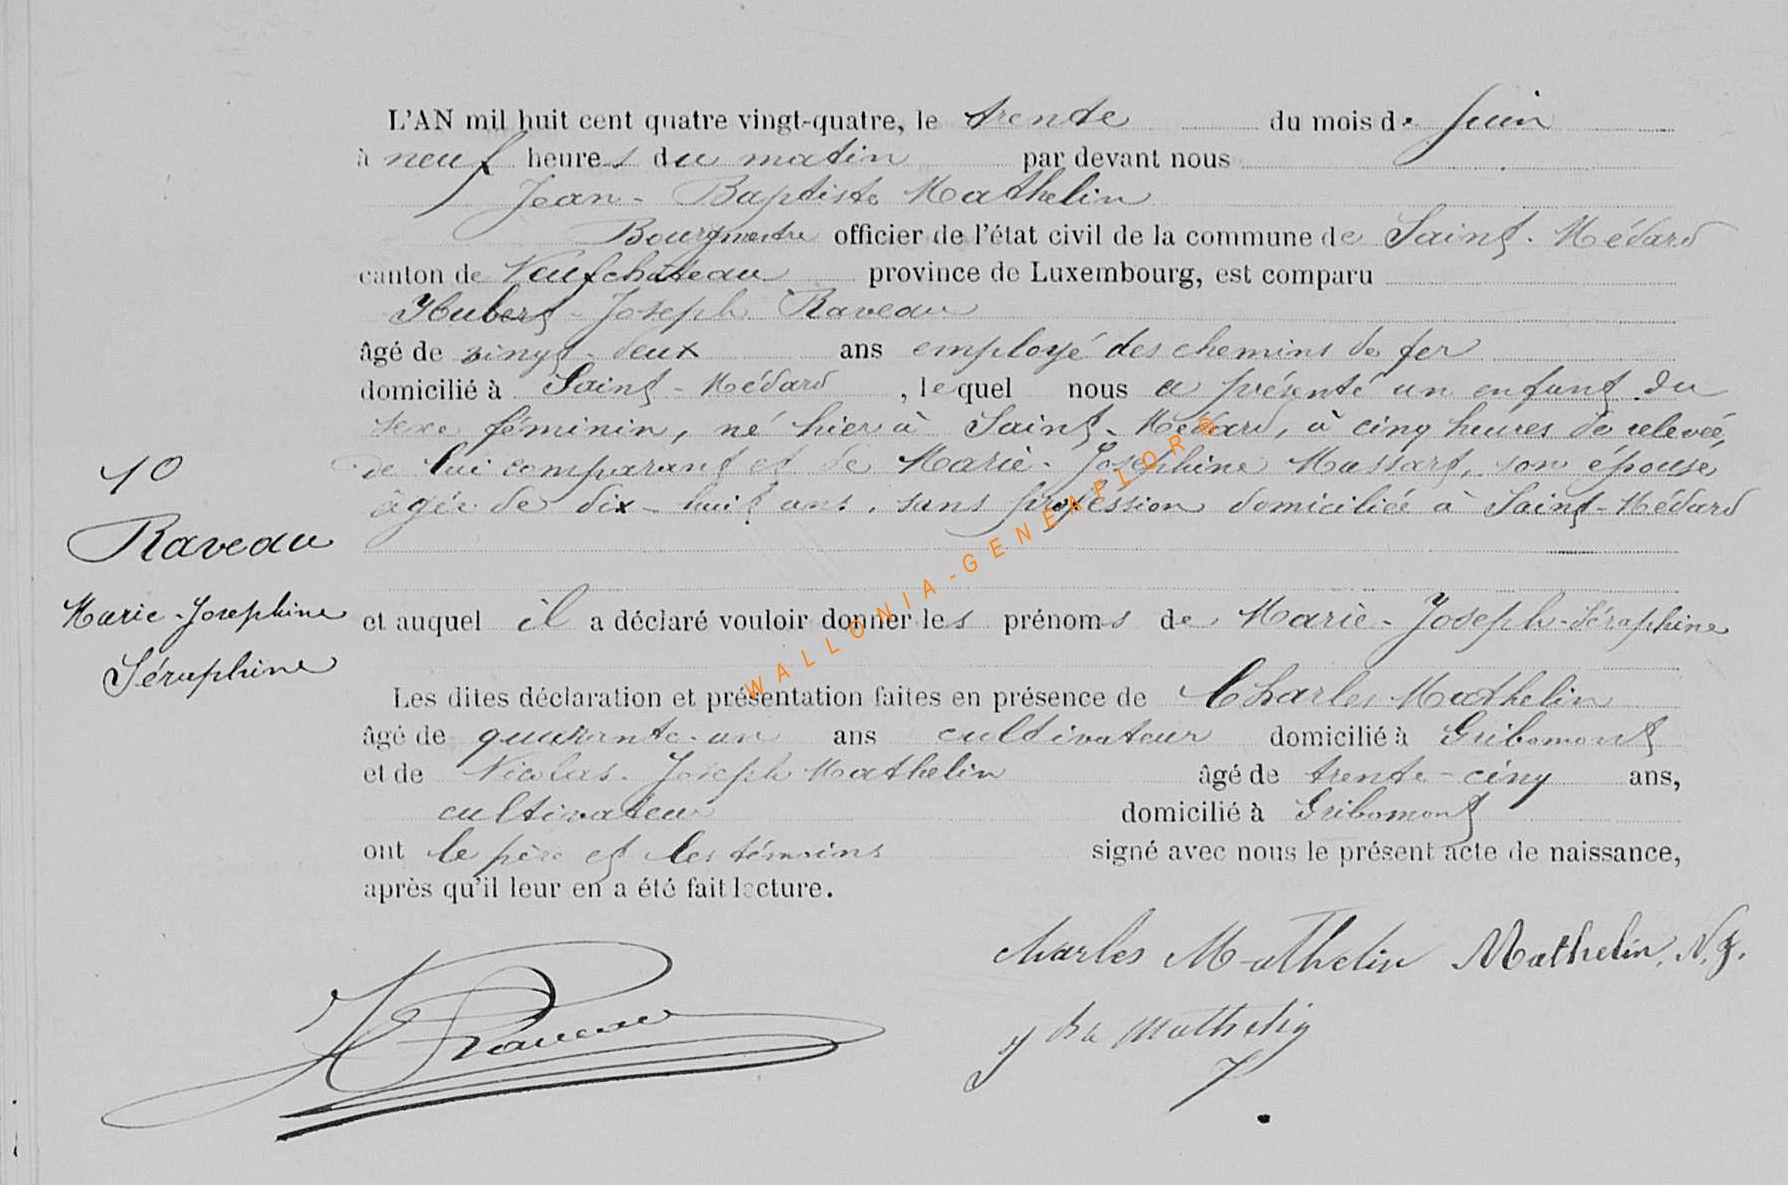 L'AN mil huit cent quatre vingt-quatre, le trente du mois de Juin
à neuf heures du matin par devant nous
Jean-Baptiste Mathelin
Bourgmestre officier de l'état civil de la commune de Saint-Médard
canton de Neufchâteau province de Luxembourg, est comparu
Hubert-Joseph Raveau
âgé de vingt-deux ans employé des chemins de fer
domicilié à Saint-Médard, lequel nous a présenté un enfant du
sexe féminin, né hier à Saint-Médard, à cinq heures de relevée,
de lui comparant et de Marie-Joséphine Massart, son épouse,
âgée de dix-huit ans, sans profession domiciliée à Saint-Médard
10
Raveau
Marie-Josephine
Séraphine
et auquel il a déclaré vouloir donner les prénoms de Marie-Joseph-Séraphine
Les dites déclaration et présentation faites en présence de Charles Mathelin
âgé de quarante-un ans cultivateur domicilié à Gribomont
et de Nicolas-Joseph Mathelin âgé de trente-cinq ans,
cultivateur domicilié à Gribomont
ont le père et les témoins signé avec nous le présent acte de naissance,
après qu'il leur en a été fait lecture.
Charles Mathelin Mathelin, N. J.
H Raveau
J Bte Mathelin
WALLONIA-GENEAFLOR®